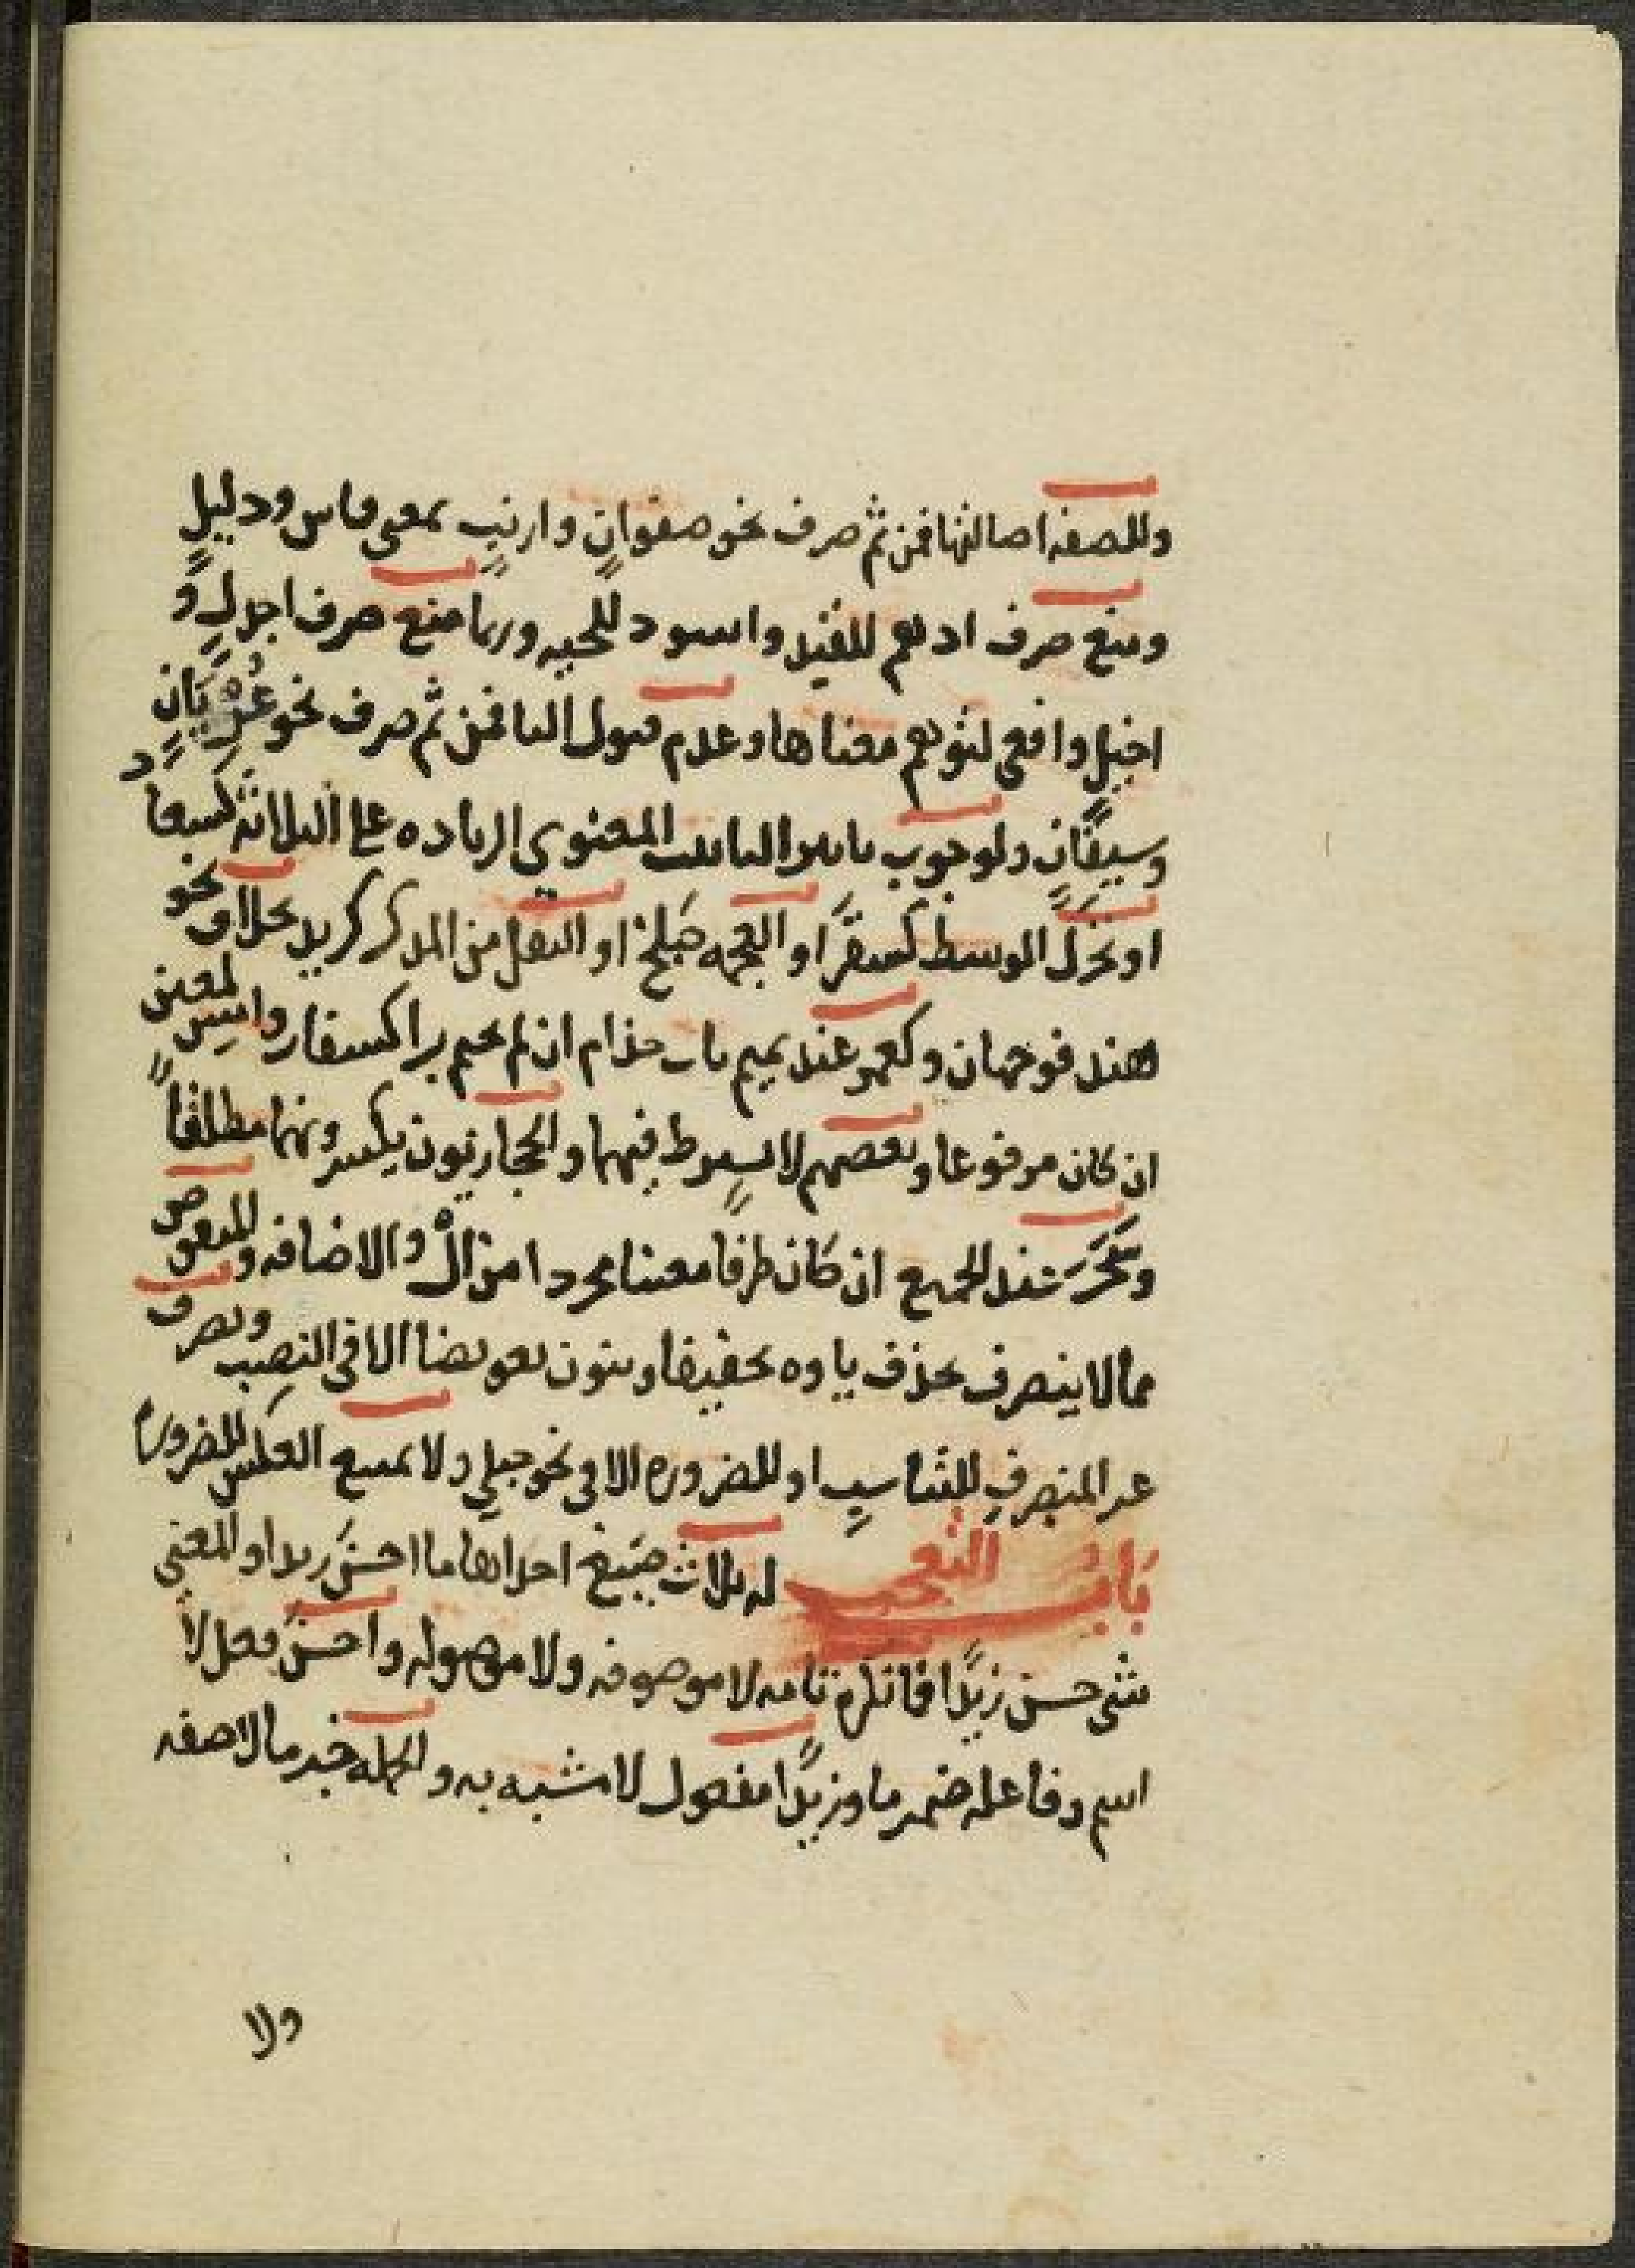 وللصفه اصالتها فمن ثم صرف نحو صفوانٍ وارنبٍ بمعنى قاس ودليلٍ
ومنع صرف ادهم للقيد واسود للحيه وربما منع صرف اجدلٍ و
اخيلٍ وافعى لتوهم معناها وعدم قبول التا فمن ثم صرف نحو عُرْيَانٍ
وسيفانٍ ولوجوب تاثير التانيث المعنوي الزياده على الثلاثة كسعاد
او تحرك الوسط كسقرَ او العجمه كبلخ او النقل من المذكر كزيد علما ونحو
هند فوجهان وكعمر عند تميم باب حذام ان لم يختم برا كسفار وامسِ لمعين
ان كان مرفوعا وبعضهم لا يشترط فيهما والحجازيون يكسرونهما مطلقاً
وسَحَرَ عند الجميع ان كان ظرفا معينا مجردا من الْ والاضافه والمنقوص
مما لا ينصرف بحذف ياوه تخفيفا وينون تعويضا الا في النصب ويصرف
غير المنصرف للتناسبِ او للضروره الا في نحو حبلي ولا يمتنع العكس للضرورة
بَابُ التعجب له ثلاث صيغ احداها ما احسنَ زيدا والمعنى
شي حسن زيدًا فما نكرة تامه لا موصوفه ولا موصوله واحسنَ فعل لا
اسم وفاعله ضمير ما وزيدًا مفعول لا مشبه به والجمله خبر ما لا صفه
ولا